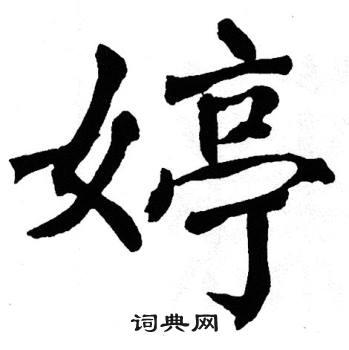 婷
词典网